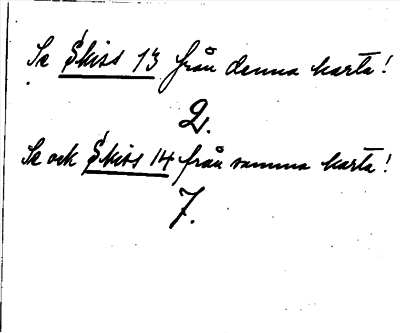 Se Skiss 13 från denna karta!
2.
Se ock Skiss 14 från samma karta!
7.